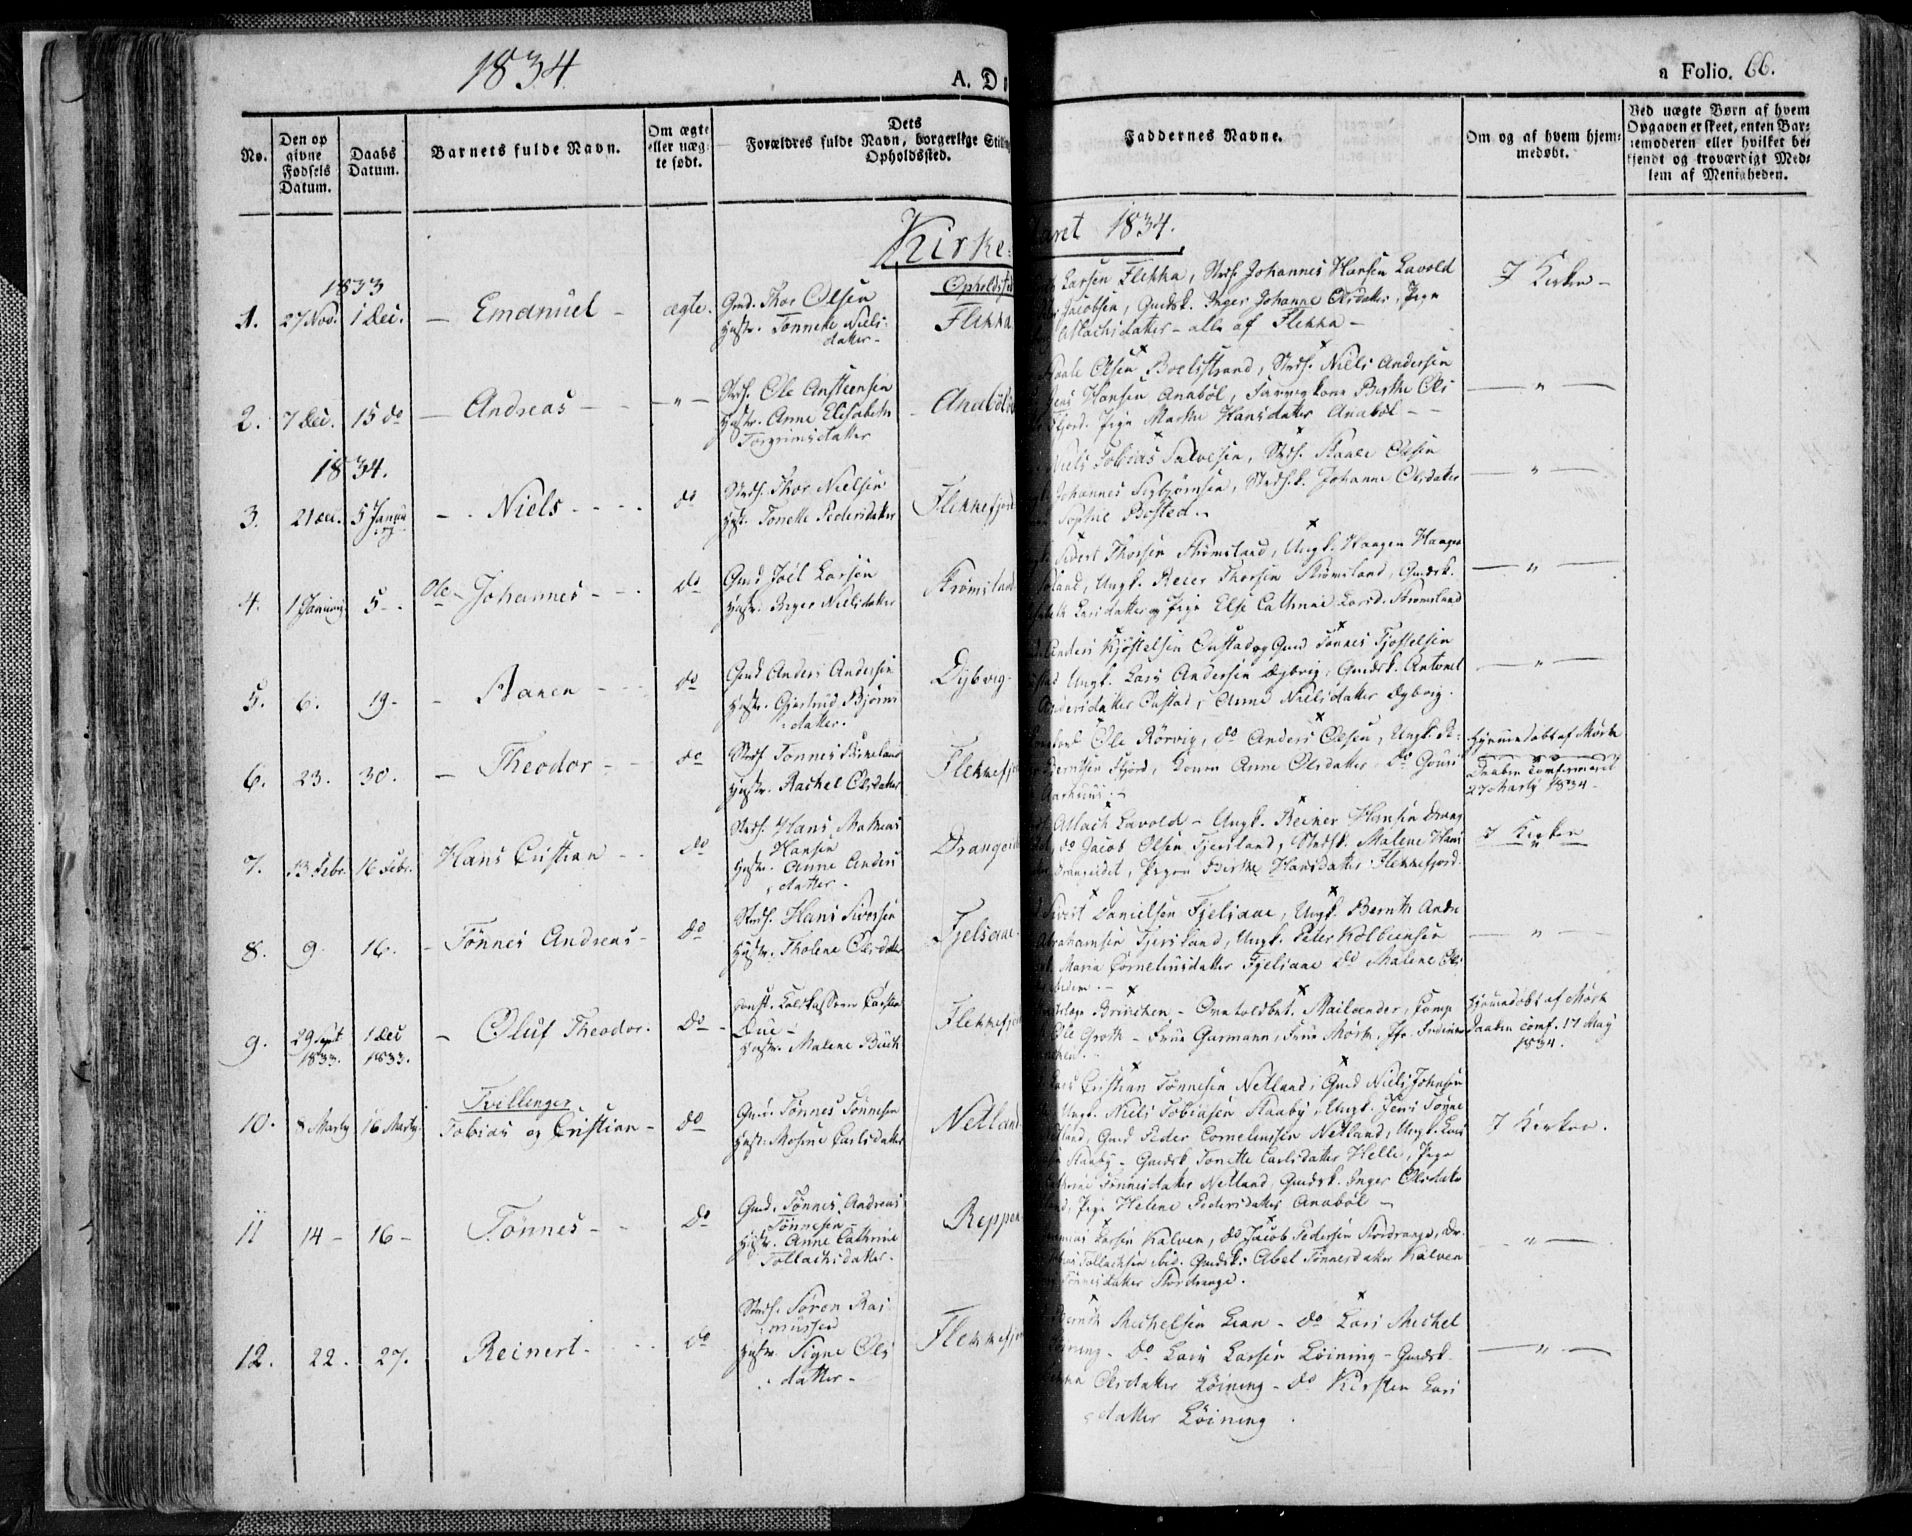 1834
A. D
a Folio. 66.
No.
Den op
givne
Fødsels
Datum.
Daabs
Datum.
Barnets fulde Navn.
Om ægte
eller uæg-
te født.
Dets
Forældres fulde Navn, borgerlige Stilling
Opholdssted.
Faddernes Navne.
Om og af hvem hjem-
medøbt.
Ved uægte Børn af hvem
Opgaven er skeet, enten Bar-
nemoderen eller hvilket be-
kjendt og troværdigt Med-
lem af Menigheden.
Kirke-
aaret 1834.
1833
1. 27 Nov. 1 Dec. — Emanuel — ægte.
Gmd. Thor Olsen
Hustr. Tonnette Niels-
datter —
Opholdssted
Flikka
Larsen Flikka, Strds. Johannes Hansen Lavold
Jacobsen, Gmdsk. Inger Johanne Olsdatter, Pige
Atlachsdatter — alle af Flikka —
I Kirken —
2. 7 Dec. 15 do — Andreas — — " —
Strds. Ole Ansteensen
Hustr. Anne Elisabeth
Torgrimsdatter
Anabøl
Staale Olsen Boelsstrand, Strds. Niels Andersen
Hansen Anabøl, Berthe Ols
Fjord. Pige Marthe Hansdatter Anabøl —
— " —
1834.
3. 21 Dec. 5 Januar — Niels — do
Strds. Thor Nielsen
Hustr. Tonette Pedersdatter
Flekkefjord
Niels Tobias Salvesen, Strds. Staale Olsen
Johannes Sigbjørnsen, Strdsk. Johanne Olsdatter
Sophie Bosted.
— " —
4. 1 Januar 5 — Ole — Johannes — do
Gmd Joël Larsen
Hustr. Berger Nielsdatter
Strømsland
Peder Thorsen Strømsland, Ungk. Haagen Haagen
Ungk. Reier Thorsen Strømsland, Gmdsk.
Larsdatter og Pige Else Cathrine Larsd. Strømsland
— " —
5. 6. 19 — — Aanen — do
Gmd Anders Andersen
Hustr. Gjertrud Bjørns
datter.
Dybvig
Anders Kjøstelsen Oustad og Gmd Tønnes Tjostelsen
Ungk. Lars Andersen Dybvig, Gmdsk. Antonet
Andersdatter Oustad, Anne Nielsdatter Dybvig.
— " —
6. 23. 30. — Theodor — do
Strds Tonnes
Hustr. Rachel Olsdatter
Flekkefj
Ole Rørvig, do Anders Olsen, Ungk. Pe-
Berntsen Fjord, Konen Anne Olsdatter, do
Aarhuus.
Hjemmedøbt af Mørk
Daaben confirmeret
27 Marty 1834 —
7. 13 Febr. 16 Febr. Hans Cristian — do
Strds. Hans Mathias
Hansen
Hustr. Anne Anders
datter —
Drangeid
Atlach Lavold — Ungk. Reiner Hansen Drang
do Jacob Olsen Fjersland, Strdsk. Malene Hans
Drangeidet, Pigen Berthe Hansdatter Flekkefjord
I Kirken
8. 9 16. — Tønnes Andreas — do
Strds. Hans Sivertsen
Hustr. Tholene Olsdatter
Fjelsaae
Sivert Danielsen Fjelsaae, Ungk. Bernth Andr
Abrahamsen Fjersland, Ungk. Peter Kolbeensen
Maria Corneliusdatter Fjelsaae do Malene Ols
— " —
9. 29 Sept 1833. 1 Dec 1833. — Oluf Theodor. do —
Const. Toldkasserer Carsten
Due —
Hustr. Malene Buch
Flekkefj
Brinchen, — Mailænder, Comp
Ole Groth — Frue Garmann, Frue Mørk, Jfr.
Hjemmedøbt af Mørk
Daaben comf. 17 May
1834.
10. 8 Marty 16 Marty. Tvillenger
Tobias og Cristian — do
Gmd. Tønnes Tønnesen
Hustr. Mosine Carlsdatter
Netland
Lars Cristian Tønnesen Netland, Gmd Niels Johnsen
Ungk. Niels Tobiasen Staaby, Ungk. Jens Tønne
Netland, Gmd Peder Corneliussen Netland, Ungk. Lars
Staaby — Gmdsk. Tonette Carlsdatter Helle, Pige
Cathrine Tønnesdatter Netland, Gmdsk. Inger Olsdatter
Pige Helene Pedersdatter Anabøl —
I Kirken.
11 14 — 16 — Tønnes — do
Gmd. Tønnes Andreas
Tønnesen
Hustr. Anne Cathrine
Tollachsdatter.
Reppen
Larsen Kalven, do Jacob Pedersen Stordrange, do
Tollachsen ibid. Gmdsk. Abel Tønnesdatter Kalven
Tønnesdatter Stordrange.
— " —
12. 22. 27. Reinert — do
Strds. Søren Ras
mussen
Hustr. Signe Ols
datter —
Flekkefj
Bernth Michelsen Lian — do Lars Michel
Løining — do Lars Larsen Løining — Gmdsk.
Olsdatter Løining — do Kirsten Lars
datter Løining.
— " —